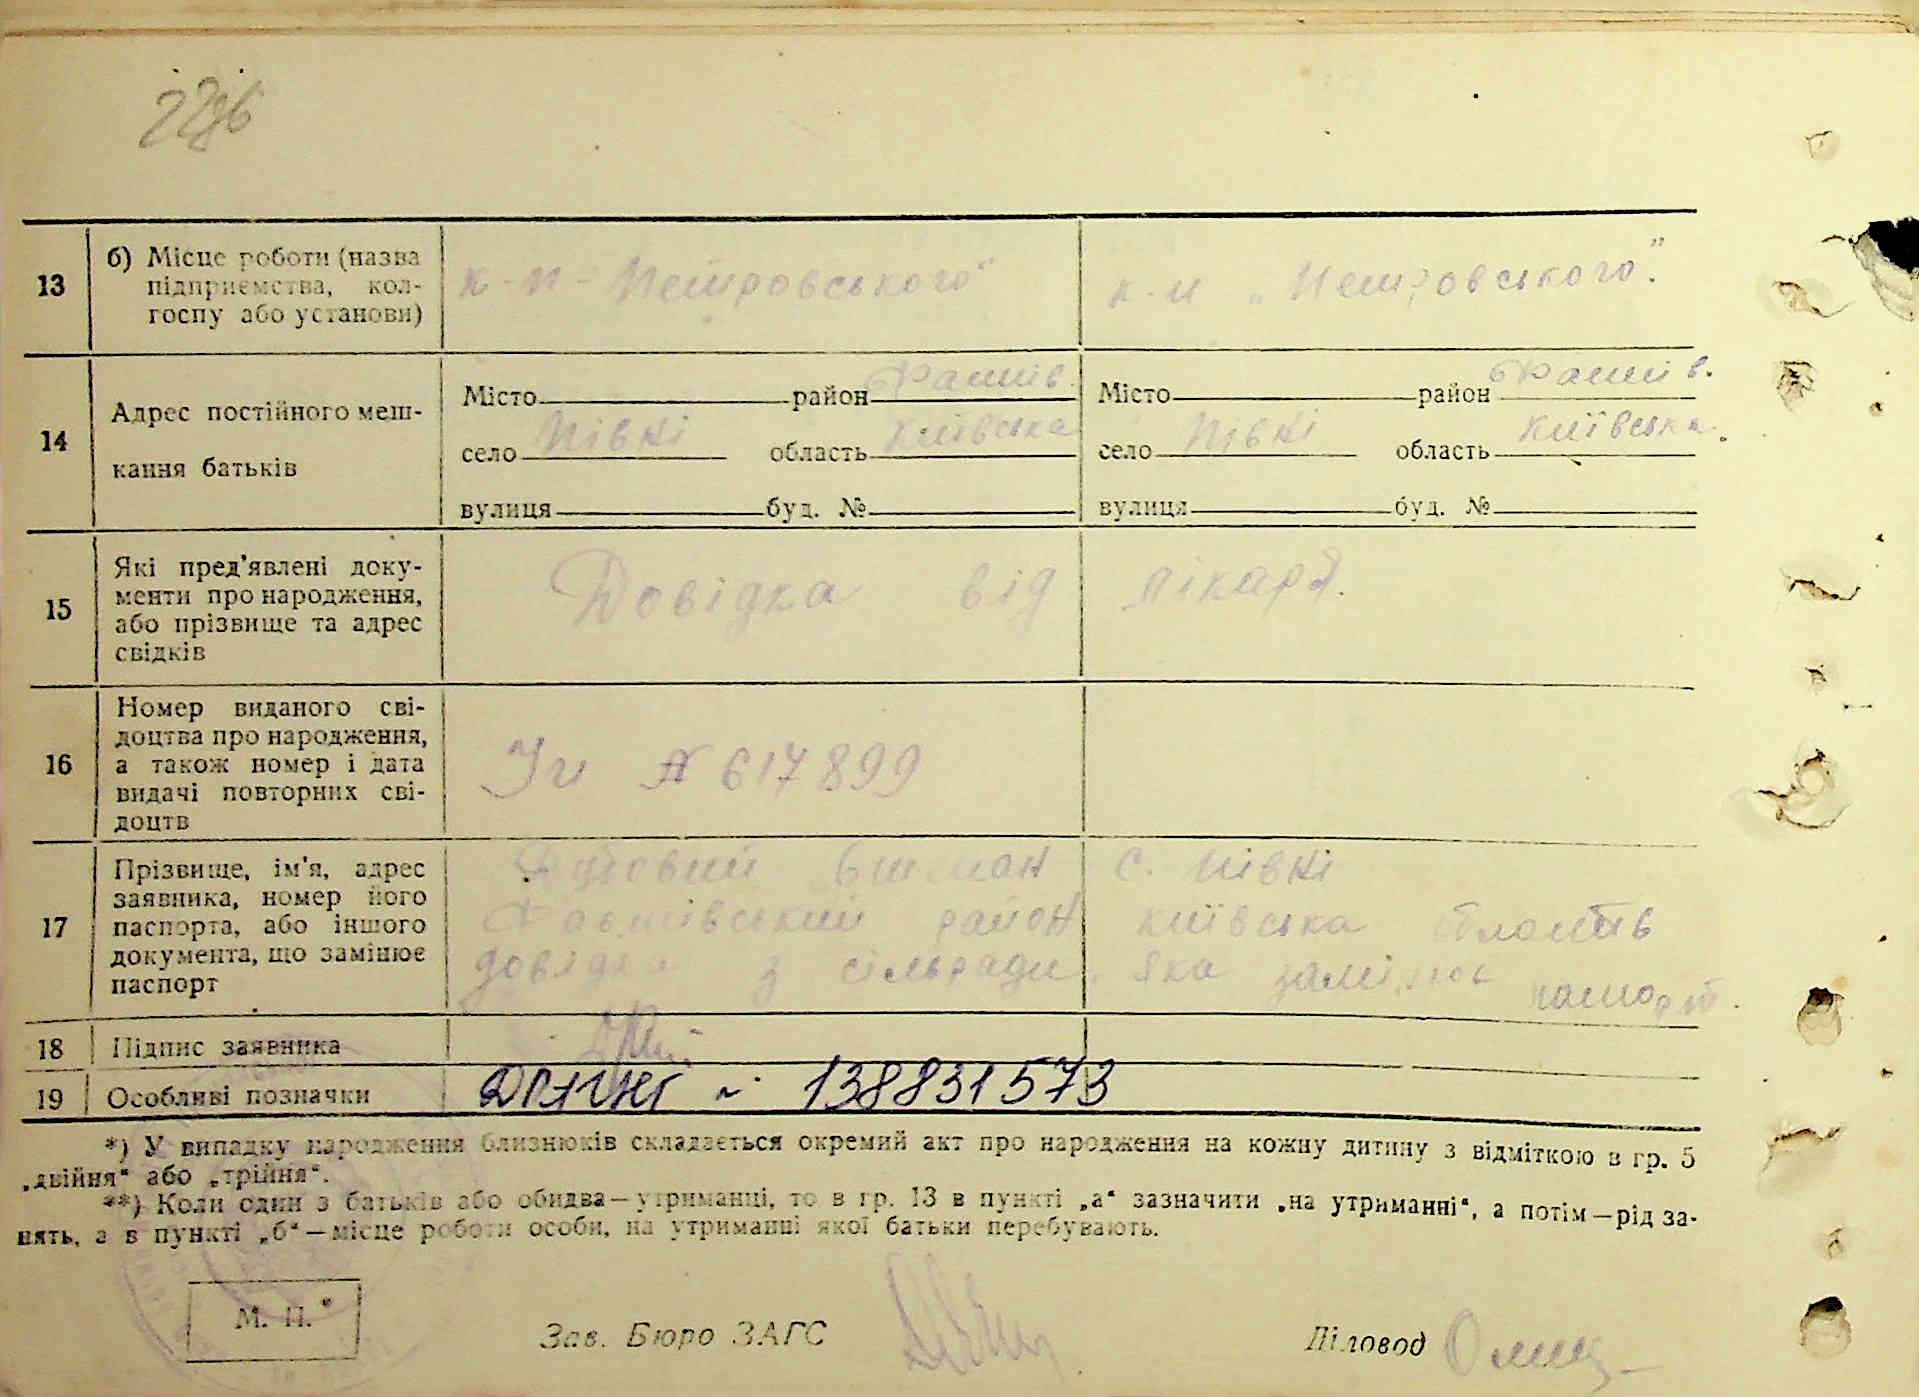 13
б) Місце роботи (назва
підприємства, кол-
госпу або установи)
к-п - Петровського"
к-п „Петровського".
14
Адрес постійного меш-
кання батьків
Місто район Фастів.
село Півні область Київська
вулиця буд. №
Місто район Фастів.
село Півні область Київська.
вулиця буд. №
15
Які пред'явлені доку-
менти про народження,
або прізвище та адрес
свідків
Довідка від лікаря.
16
Номер виданого сві-
доцтва про народження,
а також номер і дата
видачі повторних сві-
доцтв
№ 617899
17
Прізвище, ім'я, адрес
заявника, номер його
паспорта, або іншого
документа, що замінює
паспорт
с. Півні
Фастівський район Київська область
довідка з сільради, яка замінює паспорт.
18
Підпис заявника
19
Особливі позначки
ДРАЦСГ № 138831573
*) У випадку народження близнюків складається окремий акт про народження на кожну дитину з відміткою в гр. 5
„двійня“ або „трійня“.
**) Коли один з батьків або обидва—утриманці, то в гр. 13 в пункті „а“ зазначити „на утриманні“, а потім—рід за-
нять, а в пункті „б“—місце роботи особи, на утриманні якої батьки перебувають.
М. П.
Зав. Бюро ЗАГС
Діловод